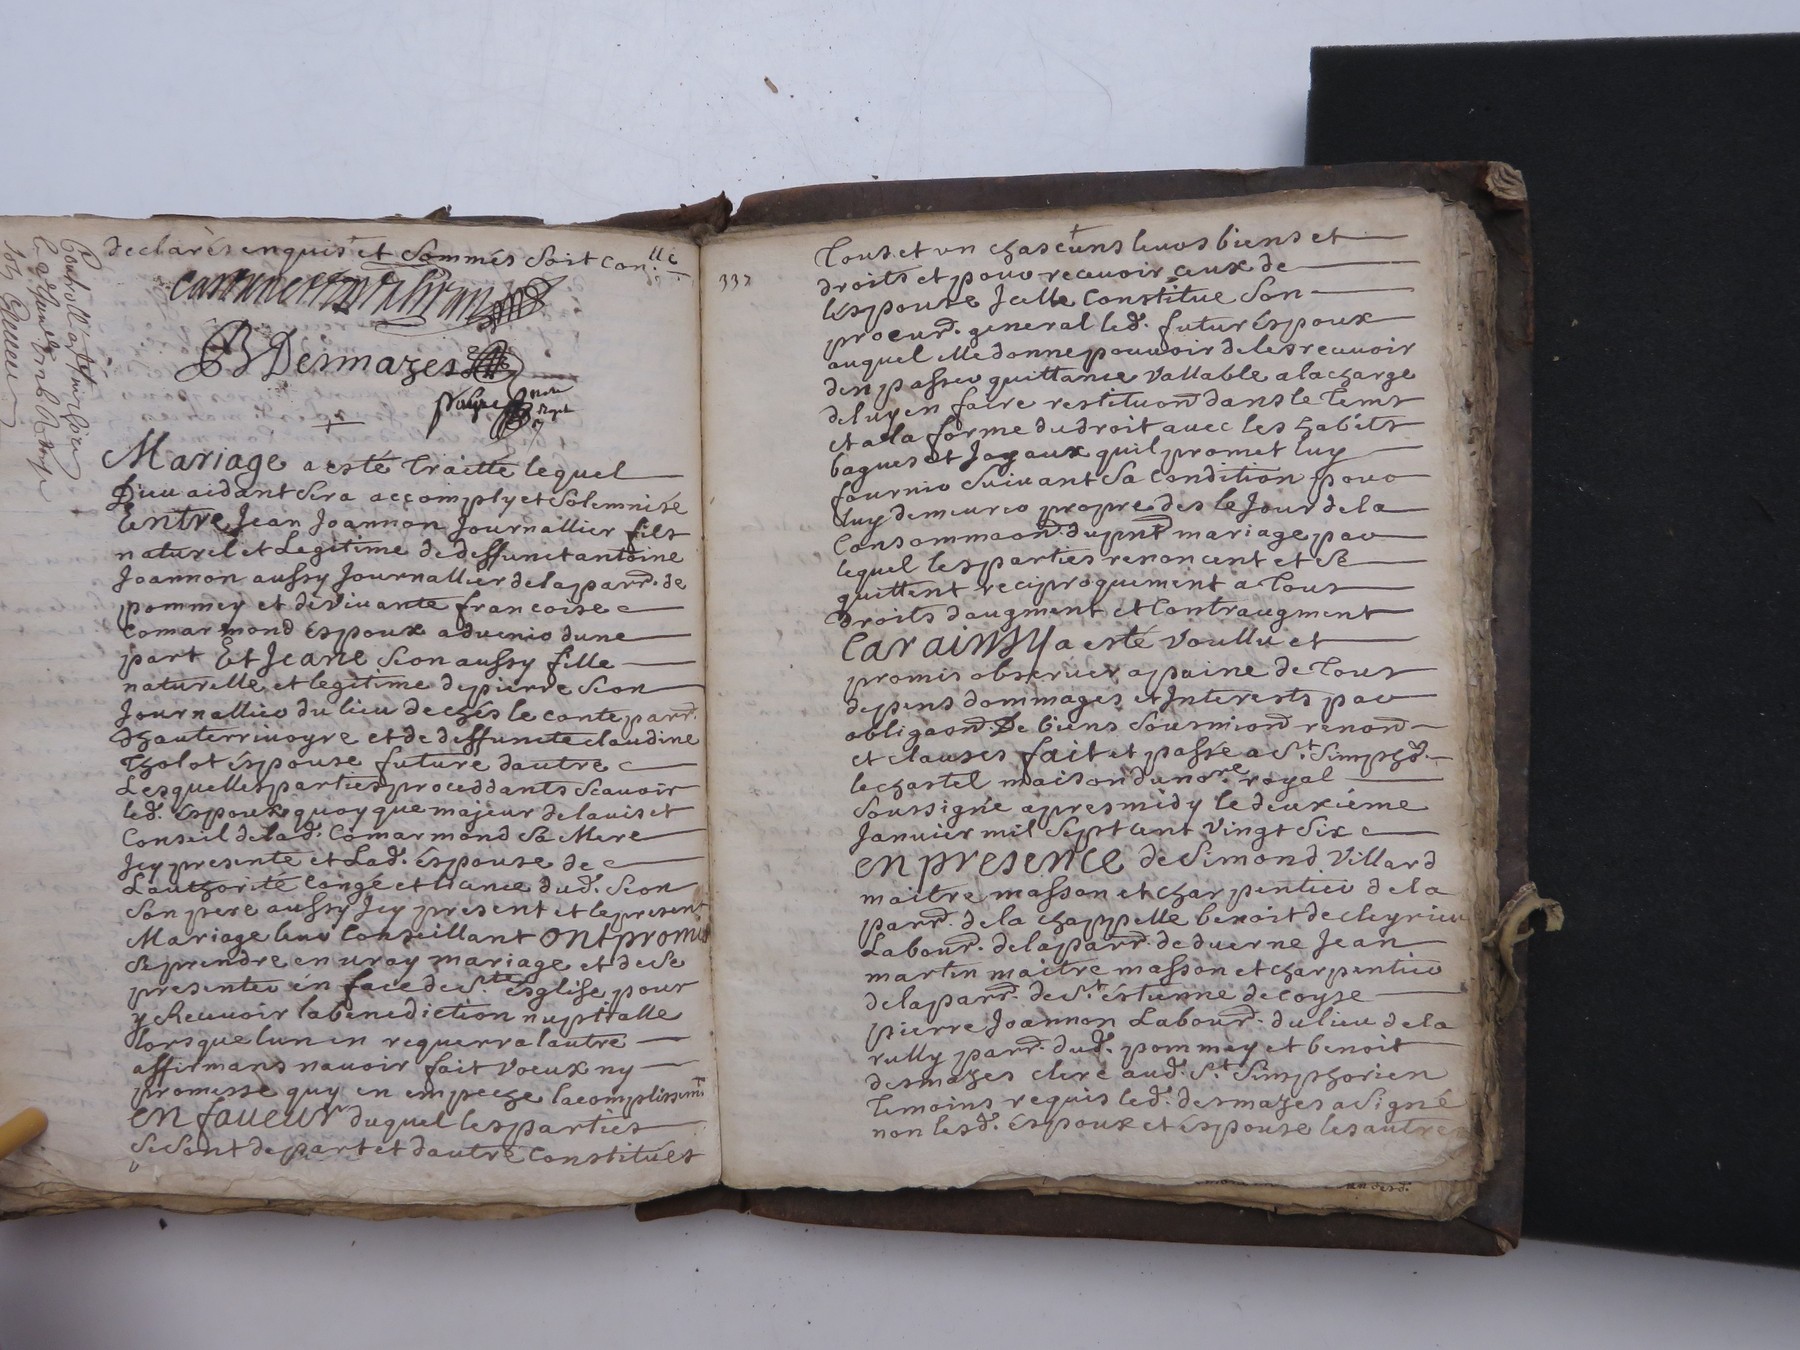 declarés enquis et sommés soit con.lle
B Desmazes
Mariage a esté traitté lequel
Dieu aidant sera accomply et solemnisé
Entre Jean Joannon Journallier fils
naturel et Legitime de deffunct antoine
Joannon aussy Journallier de la parr. de
pommey et de vivante francoise
Comarmond époux advenir dune
part Et Jeane Sion aussy fille
naturelle et legitime de pierre Sion
Journallier du lieu de chés le conte parr.
dhauterrivoyre et de deffuncte claudine
Tholot éspouse future dautre
Lesquelles parties proceddants scavoir
led. éspoux quoy que majeur de lavis et
Conseil de lad. Comarmond sa Mere
Jcy presente et Lad. éspouse de
Lauthorité congé et licence dud. Sion
son pere aussy Jcy present et le present
Mariage leur Conseillant ont promis
se prendre en vray mariage et de se
presenter én face de Ste ésglise pour
y Recevoir la benediction nuptialle
lorsque lun en requerra lautre
affirmans navoir fait voeux ny
promesse quy en empeche lacomplissemt
En faveur duquel les parties
se sont de part et dautre Constitués
337
Tous et un chascuns leurs biens et
droits et pour recevoir ceux de
léspouse Jcelle Constitue son
procur. general led. futur éspoux
auquel elle donne pouvoir de les recevoir
den passer quittance vallable a la charge
de luy en faire restituon dans le tems
et a la forme du droit avec les habits
bagues et Joyaux quil promet luy
fournir suivant sa Condition pour
luy demeurer propre des le Jour de la
Consommaon du pnt mariage par
lequel les parties renoncent et se
quittent reciproquement a tous
droits daugment et Contraugment
Car ainsy a esté voullu et
promis observer a paine de tous
depens dommages et Interests par
obligaon De biens soumion renon
et clauses fait et passé a St Simphō.
le chastel maison du nore royal
soussigné apres midy le deuxiéme
Janvier mil sept cent vingt six
En presence de Simond Villard
maitre masson et charpentier de la
parr. de la chappelle benoit de cleyrieu
Labour. de la parr. de duerne Jean
martin maitre masson et charpentier
de la parr. de St éstienne de coyse
pierre Joannon Labour. du lieu de la
rully parr. dud. pommey et benoit
desmazes clerc aud. St Simphorien
temoins requis led. desmazes a signé
non lesd. éspoux et éspouse les autres